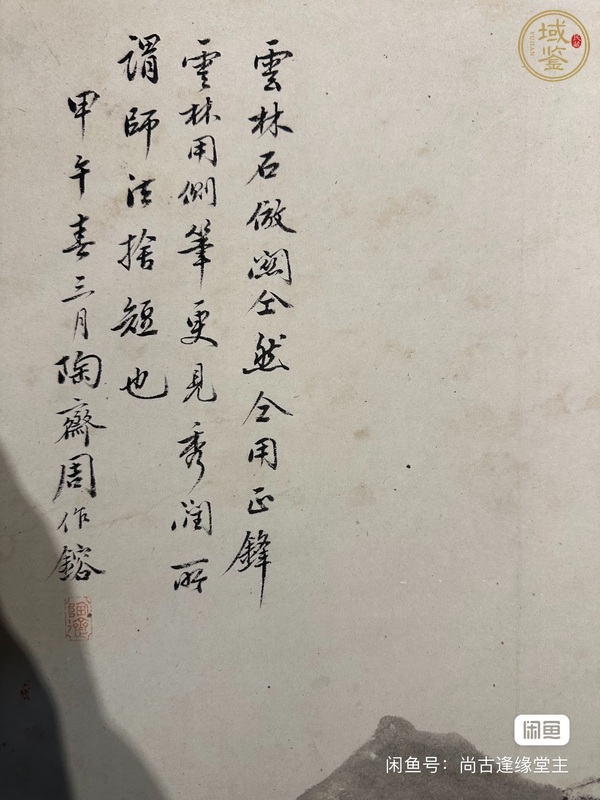 雲林石倣關仝然仝用正鋒
雲林用側筆更見秀潤所
謂師法捨短也
甲午春三月陶齋周作鎔
陶齋
域鑒
YUJIAN
闲鱼
闲鱼号：尚古逢缘堂主